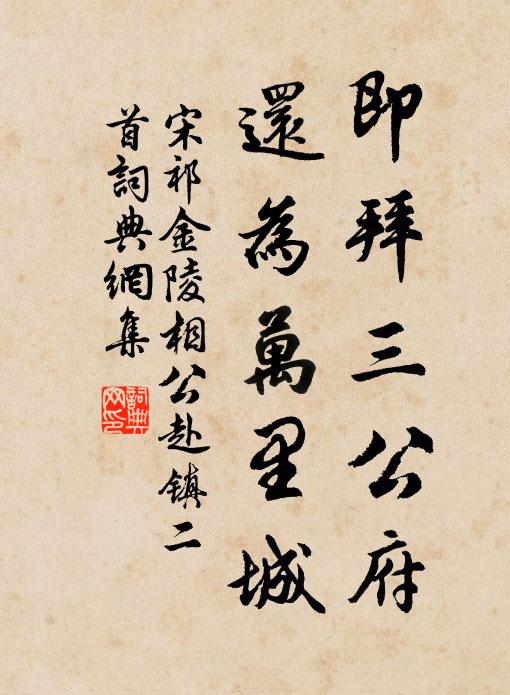 即拜三公府
還為萬里城
宋祁金陵相公赴镇二
首詞典網集
詞典
网印